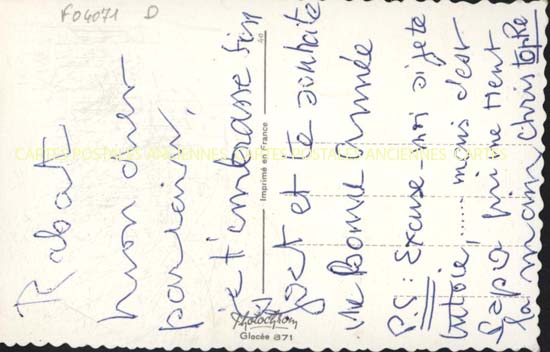 F04071 D
Rabat
mon cher
parrain,
je t'embrasse bien
fort et te souhaite
une Bonne année
P.S: Excuse-moi si je te
tutoie, ..... mais c'est
papa qui me tient
la main Christophe
40
Imprimé en France
Photochrom
Glacée 871
CARTES POSTALES ANCIENNES CARTES POSTALES ANCIENNES CARTES